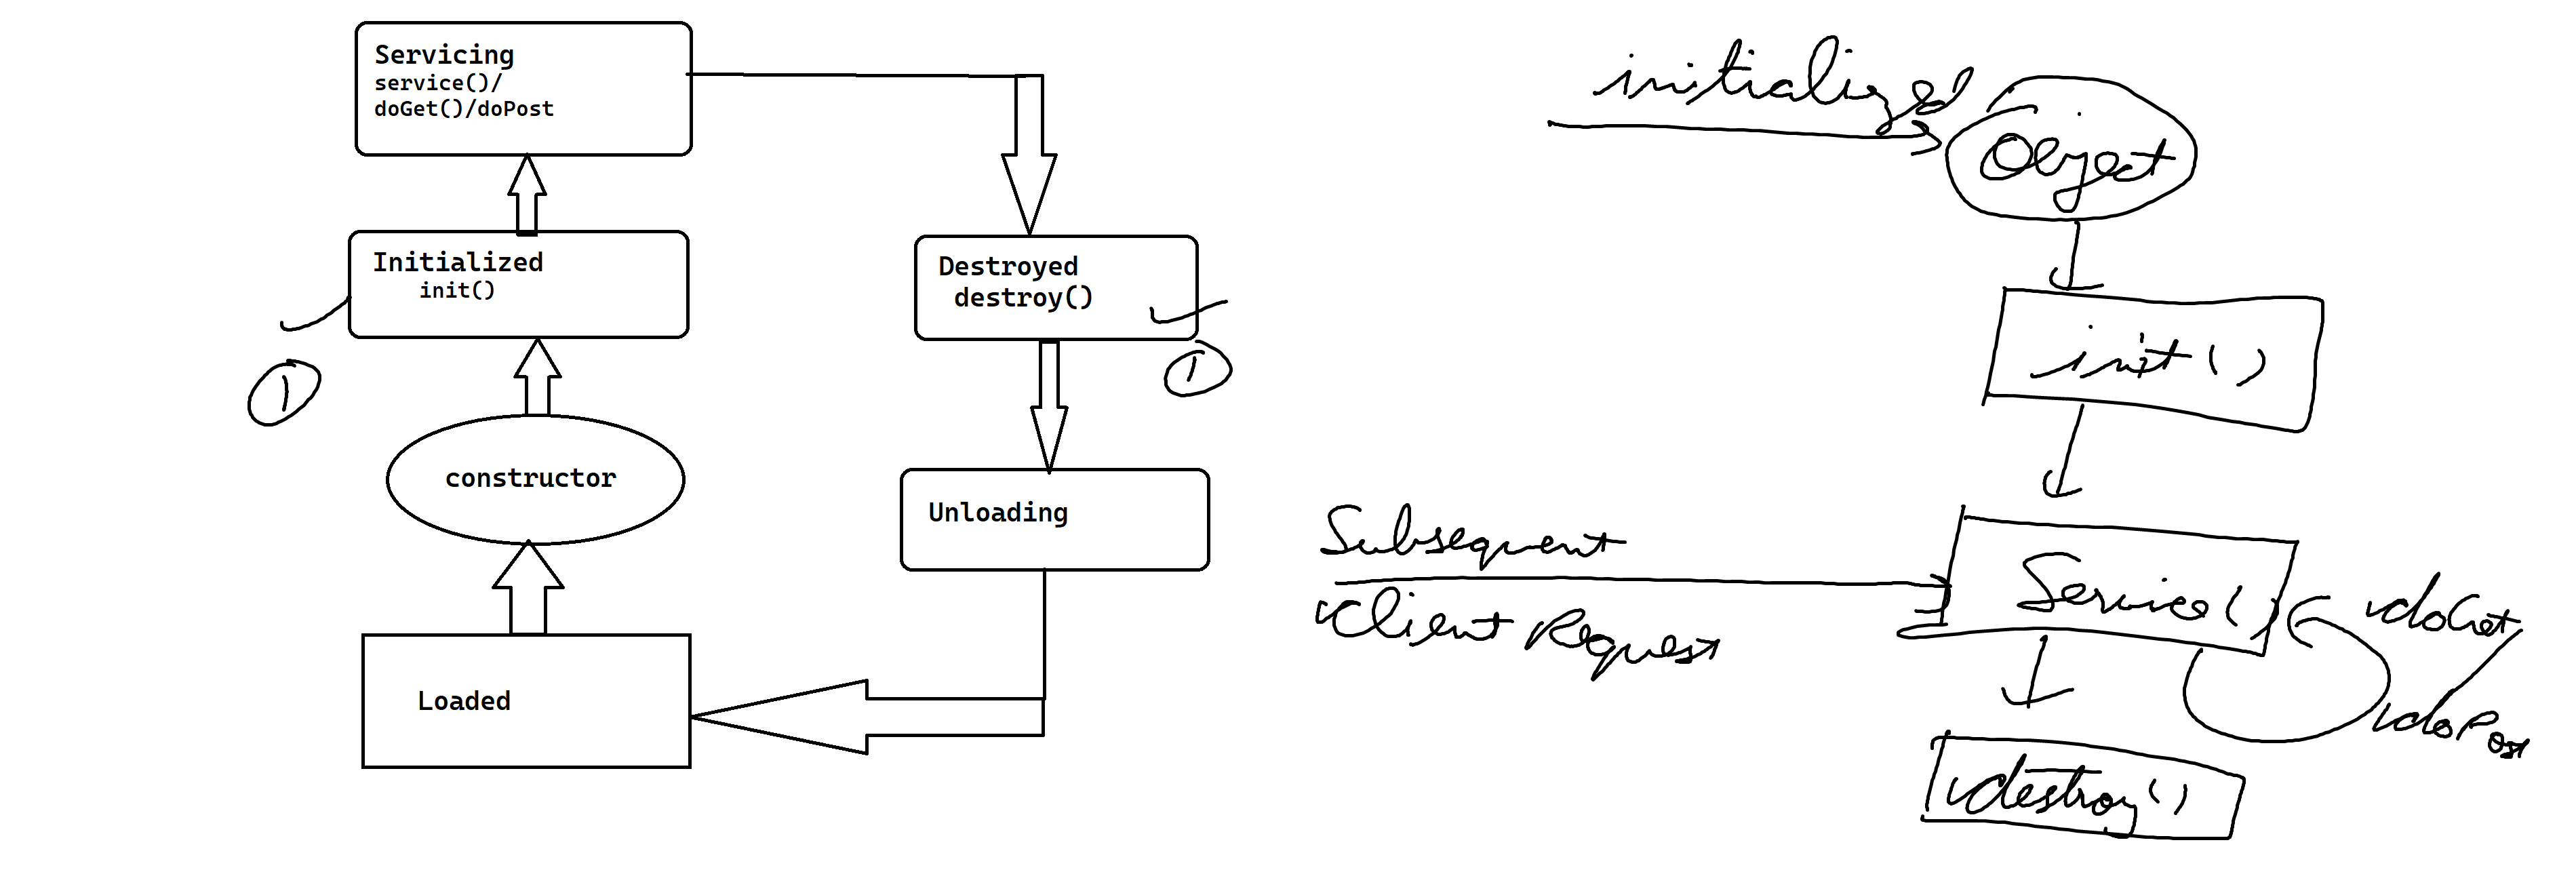 Servicing
service()/
doGet()/doPost
Initialized
init()
1
constructor
Loaded
Destroyed
destroy()
1
Unloading
initialized
Object
init()
Subsequent
Client Request
Service()
doGet
doPost
destroy()